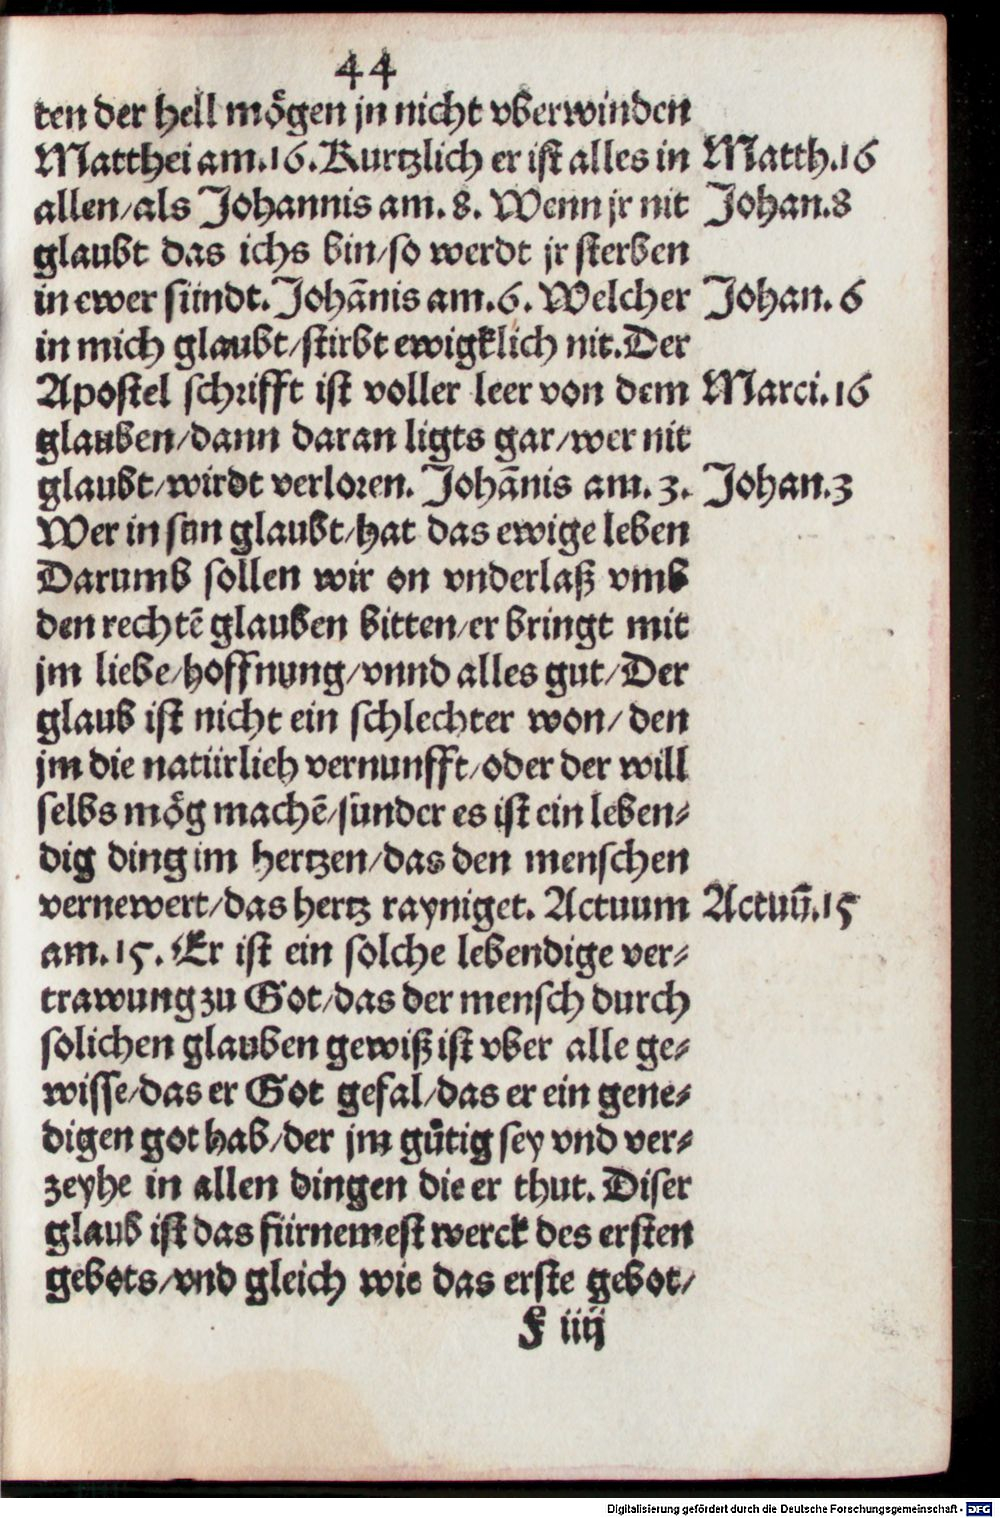 44
ten der hell mögen jn nicht vberwinden
Matthei am.16.Kurtzlich er ist alles in Matth.16
allen/als Johannis am.8. Wenn jr nit Johan.8
glaubt das ichs bin/so werdt jr sterben
in ewer sündt.Johānis am.6. Welcher Johan.6
in mich glaubt/stirbt ewigklich nit.Der
Apostel schrifft ist voller leer von dem Marci.16
glauben/dann daran ligts gar/wer nit
glaubt/wirdt verloren. Johānis am.3. Johan.3
Wer in sun glaubt/hat das ewige leben
Darumb sollen wir on vnderlaß vmb
den rechtē glauben bitten/er bringt mit
jm liebe/hoffnung/vnnd alles gut/Der
glaub ist nicht ein schlechter won/den
jm die natürlich vernunfft/oder der will
selbs mög machē/sunder es ist ein leben⸗
dig ding im hertzen/das den menschen
vernewert/das hertz rayniget. Actuum Actuū.15
am.15. Er ist ein solche lebendige ver⸗
trawung zu Got/das der mensch durch
solichen glauben gewiß ist vber alle ge⸗
wisse/das er Got gefal/das er ein gene⸗
digen got hab/der jm gütig sey vnd ver⸗
zeyhe in allen dingen die er thut. Diser
glaub ist das fürnemest werck des ersten
gebots/vnd gleich wie das erste gebot/
F iiij
Digitalisierung gefördert durch die Deutsche Forschungsgemeinschaft - DFG